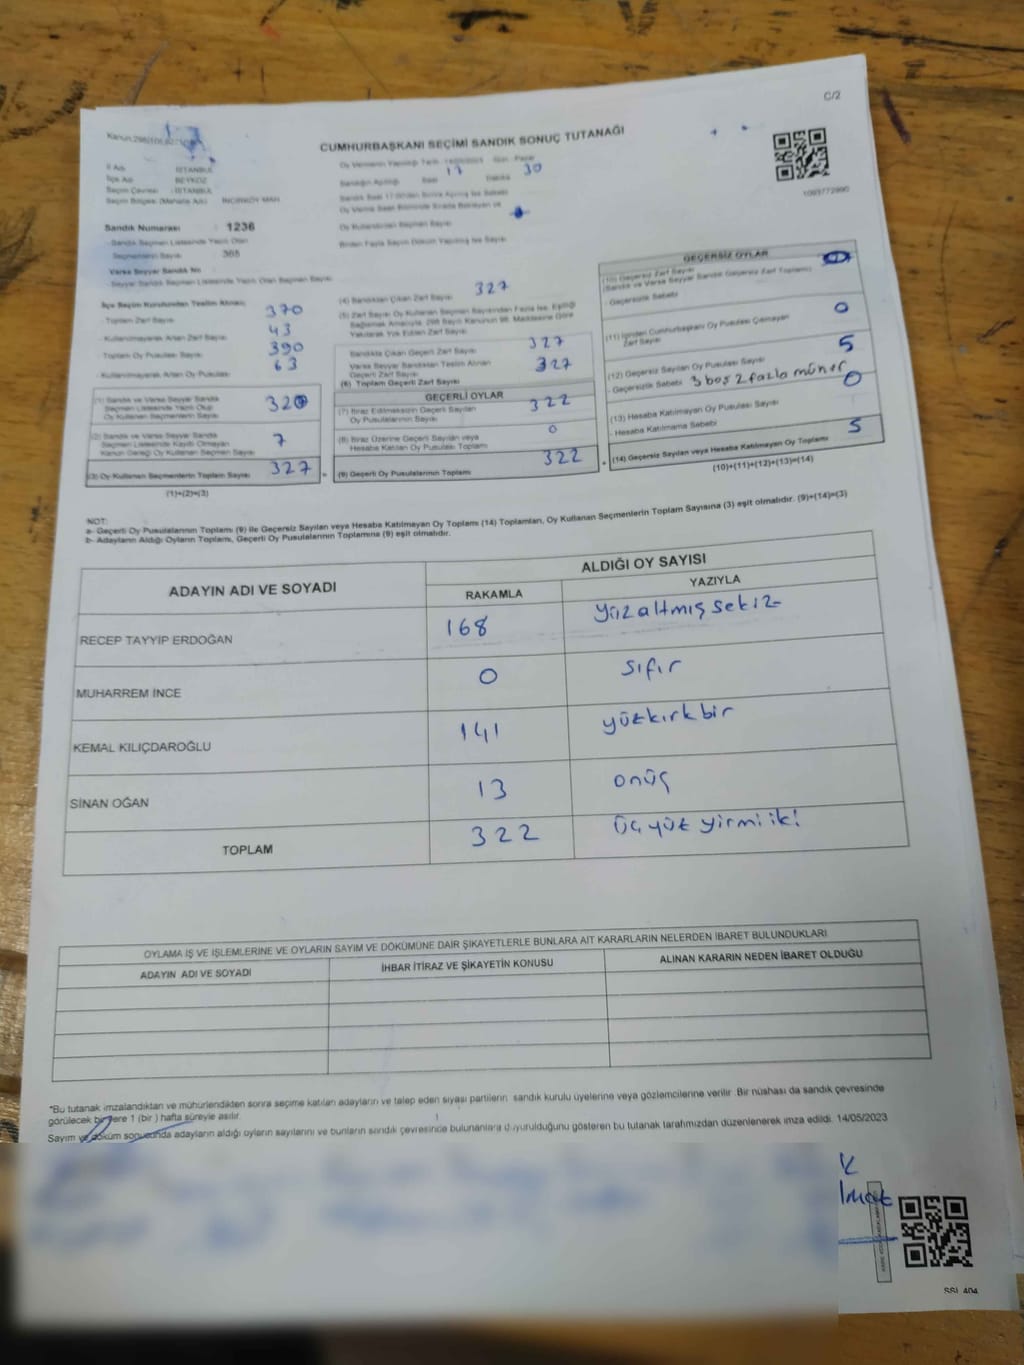 C/2
CUMHURBAŞKANI SEÇİMİ SANDIK SONUÇ TUTANAĞI
Oy Vermenin Yapıldığı Tarih 14/05/2023 Gün Pazar
Sandığın Açıldığı Saat 17 Dakika 30
1093772990
İl Adı İSTANBUL
İlçe Adı BEYKOZ
Seçim Çevresi : İSTANBUL
Seçim Bölgesi (Mahalle Adı) İNCİRKÖY MAH
Sandık Numarası : 1236
- Sandık Seçmen Listesinde Yazılı Olan
Seçmenlerin Sayısı 365
Varsa Seyyar Sandık No
- Seyyar Sandık Seçmen Listesinde Yazılı Olan Seçmen Sayısı
Oy Kullandırılan Seçmen Sayısı
Birden Fazla Sayım Döküm Yapılmış İse Sayısı
İlçe Seçim Kurulundan Teslim Alınan;
- Toplam Zarf Sayısı 370
- Kullanılmayarak Artan Zarf Sayısı 43
- Toplam Oy Pusulası Sayısı 390
- Kullanılmayarak Artan Oy Pusulası 63
(1) Sandık ve Varsa Seyyar Sandık
Seçmen Listesinde Yazılı Olup
Oy Kullanan Seçmenlerin Sayısı 320
(2) Sandık ve Varsa Seyyar Sandık
Seçmen Listesinde Kayıtlı Olmayan
Kanun Gereği Oy Kullanan Seçmen Sayısı 7
(3) Oy Kullanan Seçmenlerin Toplam Sayısı 327
(1)+(2)=(3)
(4) Sandıktan Çıkan Zarf Sayısı 327
(5) Zarf Sayısı Oy Kullanan Seçmen Sayısından Fazla İse, Eşitliği
Sağlamak Amacıyla, 298 Sayılı Kanunun 98. Maddesine Göre
Yakılarak Yok Edilen Zarf Sayısı
Sandıkta Çıkan Geçerli Zarf Sayısı 327
Varsa Seyyar Sandıktan Teslim Alınan
Geçerli Zarf Sayısı 327
(6) Toplam Geçerli Zarf Sayısı
GEÇERLİ OYLAR
(7) İtiraz Edilmeksizin Geçerli Sayılan
Oy Pusulasının Sayısı 322
(8) İtiraz Üzerine Geçerli Sayılan veya
Hesaba Katılan Oy Pusulası Toplamı 0
(9) Geçerli Oy Pusulalarının Toplamı 322
GEÇERSİZ OYLAR
(10) Geçersiz Zarf Sayısı
(Sandık ve Varsa Seyyar Sandık Geçersiz Zarf Toplamı) 0
- Geçersizlik Sebebi
(11) İçinden Cumhurbaşkanı Oy Pusulası Çıkmayan
Zarf Sayısı 0
(12) Geçersiz Sayılan Oy Pusulası Sayısı 5
- Geçersizlik Sebebi 3 boş 2 fazla mühür
(13) Hesaba Katılmayan Oy Pusulası Sayısı 0
- Hesaba Katılmama Sebebi
(14) Geçersiz Sayılan veya Hesaba Katılmayan Oy Toplamı 5
(10)+(11)+(12)+(13)=(14)
NOT:
a- Geçerli Oy Pusulalarının Toplamı (9) ile Geçersiz Sayılan veya Hesaba Katılmayan Oy Toplamı (14) Toplamları, Oy Kullanan Seçmenlerin Toplam Sayısına (3) eşit olmalıdır. (9)+(14)=(3)
b- Adayların Aldığı Oyların Toplamı, Geçerli Oy Pusulalarının Toplamına (9) eşit olmalıdır.
ADAYIN ADI VE SOYADI ALDIĞI OY SAYISI
RAKAMLA YAZIYLA
RECEP TAYYIP ERDOĞAN 168 yüzaltmışsekiz
MUHARREM İNCE 0 sıfır
KEMAL KILIÇDAROĞLU 141 yüzkırkbir
SİNAN OĞAN 13 onüç
TOPLAM 322 üçyüz yirmiiki
OYLAMA İŞ VE İŞLEMLERİNE VE OYLARIN SAYIM VE DÖKÜMÜNE DAİR ŞİKAYETLERLE BUNLARA AİT KARARLARIN NELERDEN İBARET BULUNDUKLARI
ADAYIN ADI VE SOYADI İHBAR İTİRAZ VE ŞİKAYETİN KONUSU ALINAN KARARIN NEDEN İBARET OLDUĞU
*Bu tutanak imzalandıktan ve mühürlendikten sonra seçime katılan adayların ve talep eden siyasi partilerin sandık kurulu üyelerine veya gözlemcilerine verilir. Bir nüshası da sandık çevresinde
görülecek bir yere 1 (bir ) hafta süreyle asılır.
Sayım ve döküm sonucunda adayların aldığı oyların sayılarını ve bunların sandık çevresinde bulunanlara duyurulduğunu gösteren bu tutanak tarafımızdan düzenlenerek imza edildi. 14/05/2023